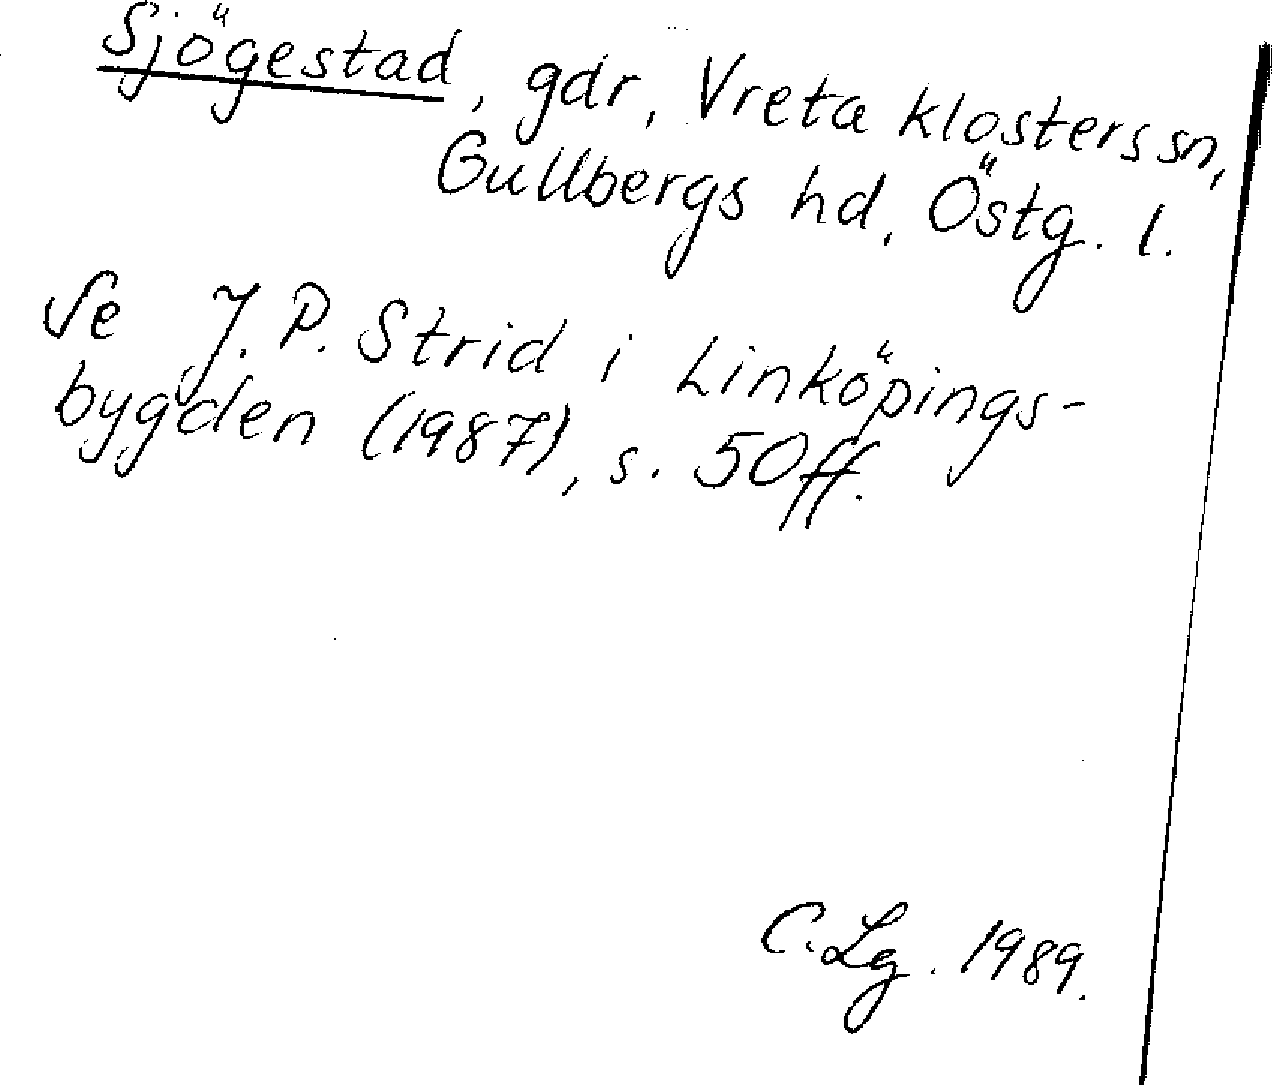 Sjögestad, gdr, Vreta klosters sn,
Gullbergs hd, Östg. l.
Se J. P. Strid i Linköpings-
bygden (1987), s. 50ff.
C. Lg. 1989.